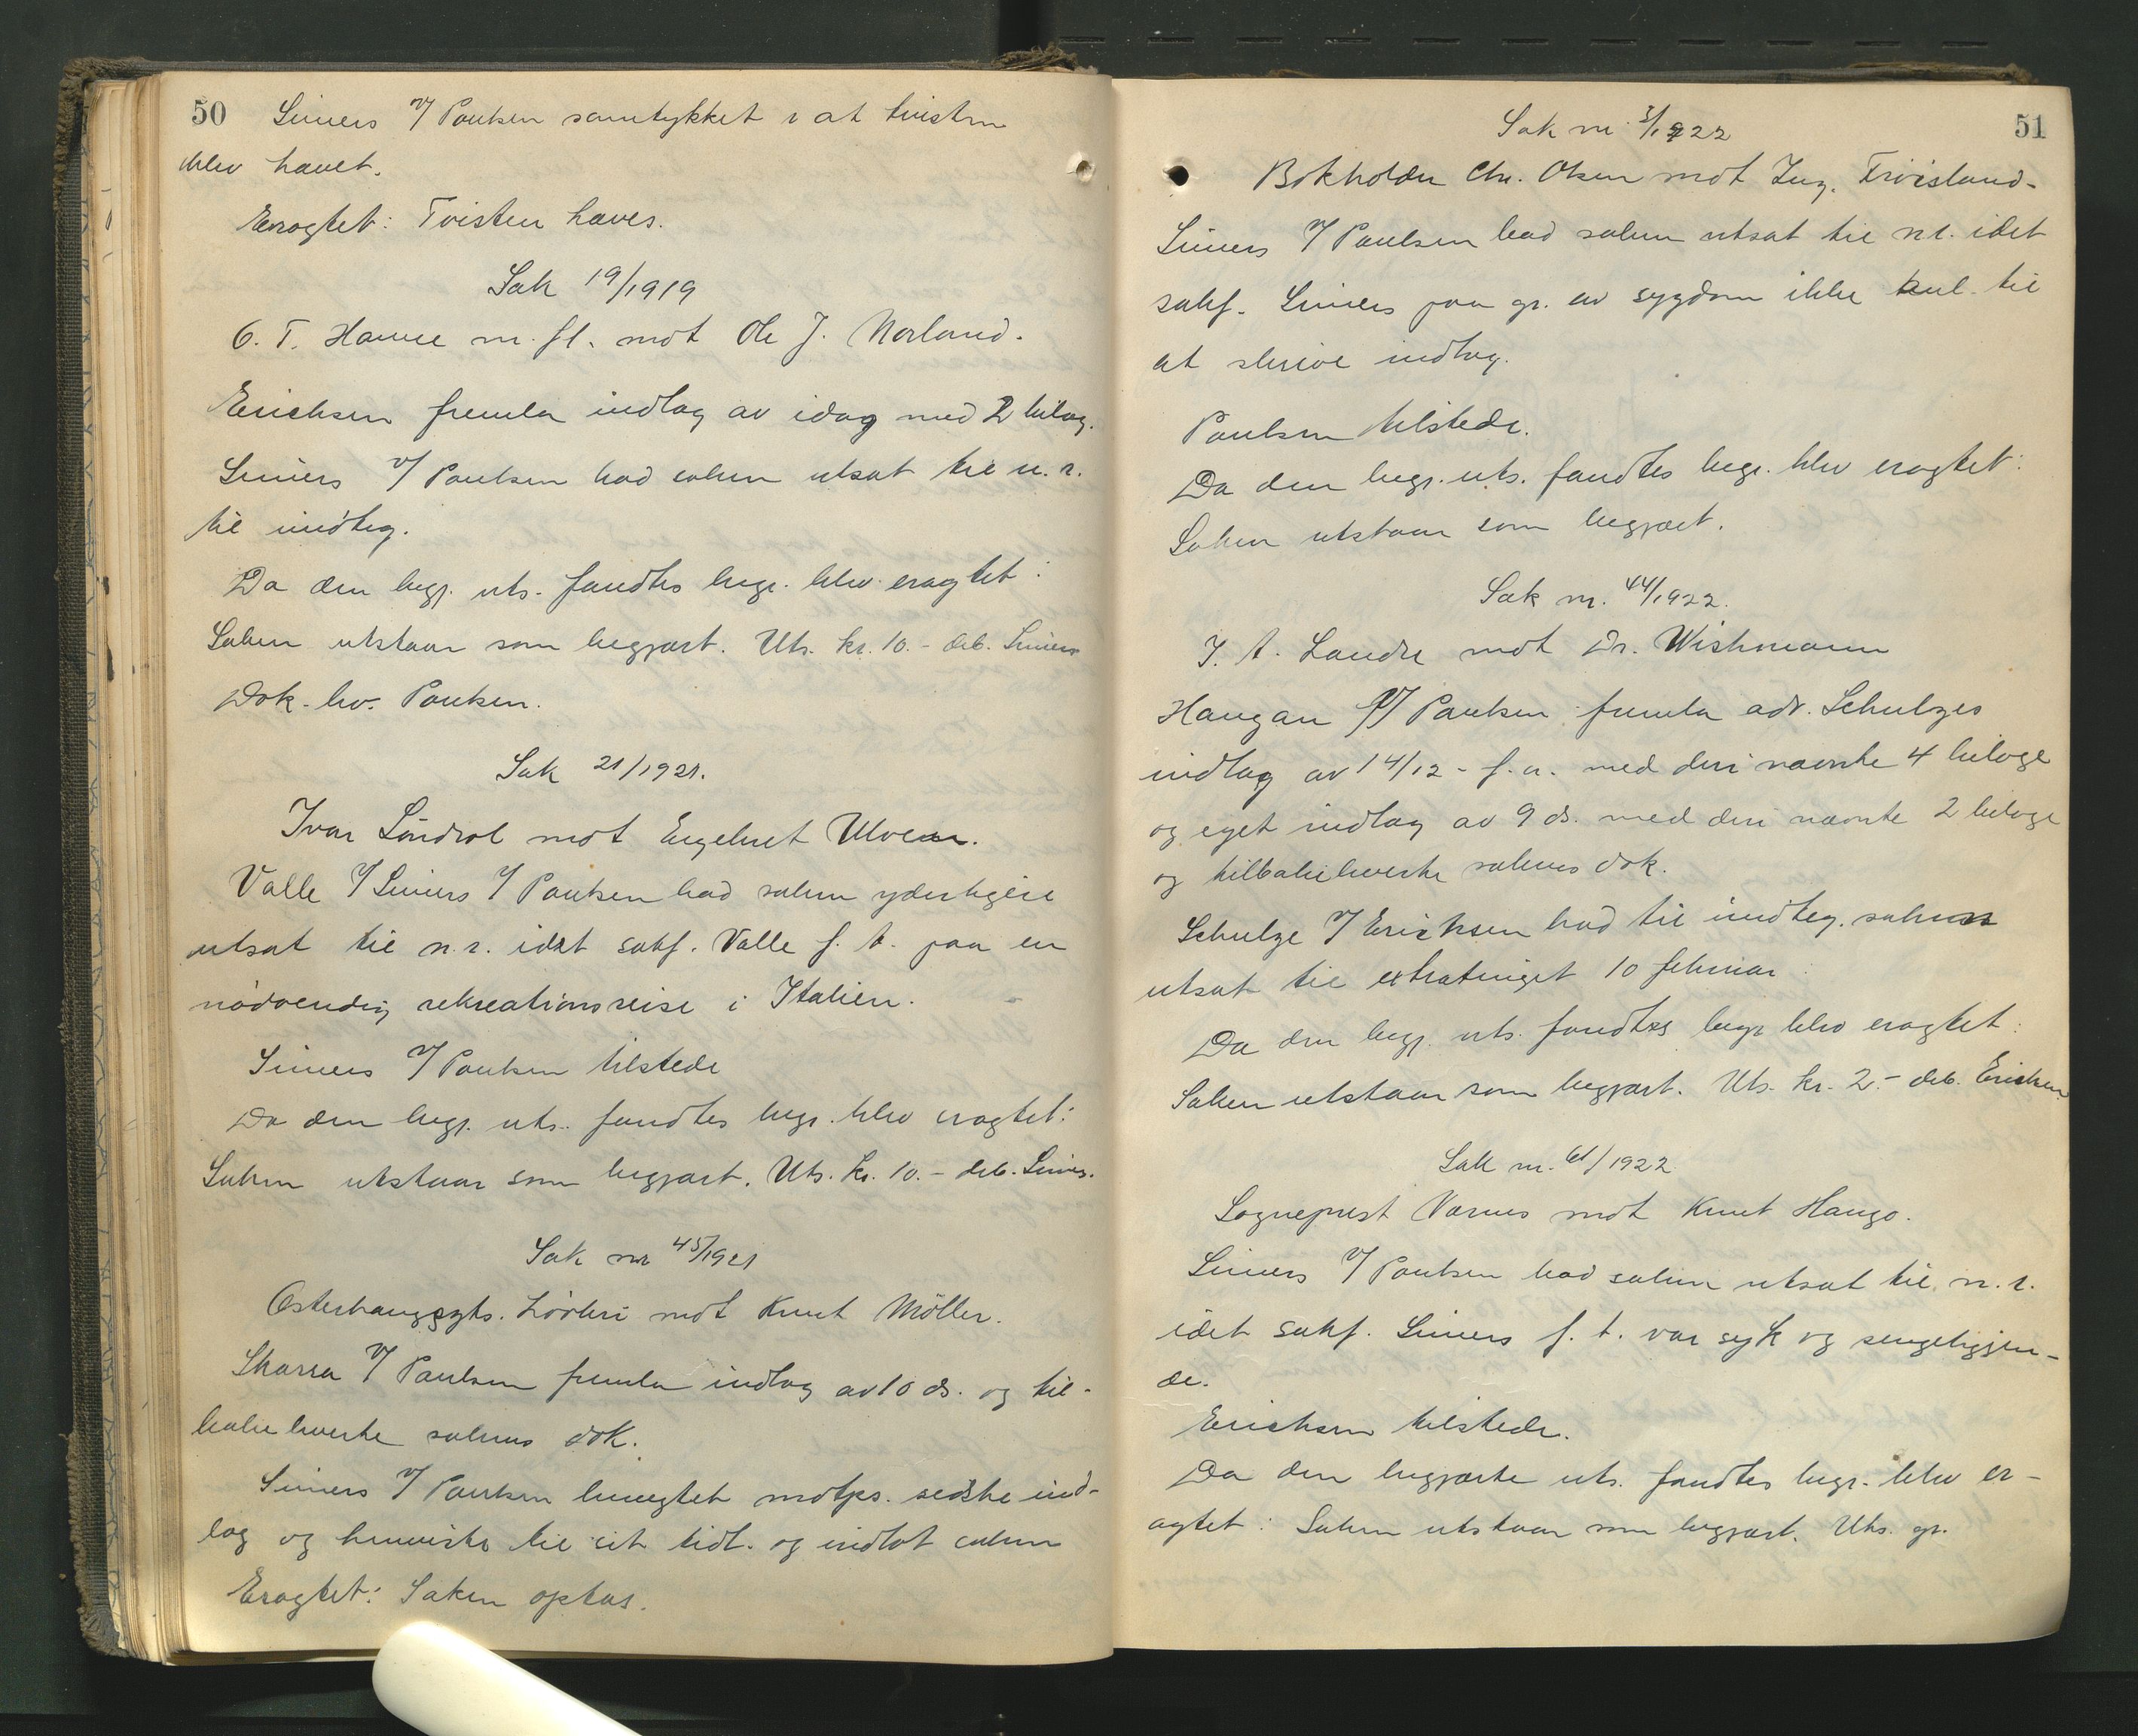 50 Siuers v/ Paulsen samtykket i at tvisten
blev hævet.
Eragtet: Tvisten hæves.
Sak 19/1919
O. T. Hauue m. fl. mot Ole J. Norland.
Erichsen fremla indlæg av idag med 2 bilag.
Siuers v/ Paulsen bad saken utsat til n. r.
til indlæg.
Da den begj. uts. fandtes begr. blev eragtet:
Saken utstaar som begjært. Uts. kr. 10.- deb. Siuers
Dok. lev. Paulsen.
Sak 21/1921.
Ivar Löndvol mot Engebret Ulveen.
Valle v/ Siuers v/ Paulsen bad saken yderligere
utsat til n. r. idet sakf. Valle f. t. paa en
nödvendig rekreationsreise i Italien.
Siuers v/ Paulsen tilstede
Da den begj. uts. fandtes begr. blev eragtet:
Saken utstaar som begjært. Uts. kr. 10.- deb. Siuers.
Sak nr 45/1921
Österhaug mot Knut Möller.
Skarra v/ Paulsen fremla indlæg av 10 ds. og til-
bakeleverte sakens dok.
Siuers v/ Paulsen benegtet motps. sidste ind-
læg og henviste til sit tidl. og indlot saken
Eragtet: Saken optas.
51
Sak nr. 3/1922
Bokholder Chr. Olsen mot Ing. Tröisland.
Siuers v/ Paulsen bad saken utsat til n. r. idet
sakf. Siuers paa gr. av sygdom ikke til
at skrive indlæg.
Paulsen tilstede.
Da den begj. uts. fandtes begr. blev eragtet:
Saken utstaar som begjært.
Sak nr. 44/1922.
J. A. Landre mot Dr. Wishmann
Haugan v/ Paulsen fremla adv. Schulzes
indlæg av 14/12 - f. a. med deri nævnte 4 bilage
og eget indlæg av 9 ds. med deri nævnte 2 bilage
og tilbakeleverte sakens dok.
Schulze v/ Erichsen bad til indlæg. saken
utsat til extratinget 10 februar
Da den begj. uts. fandtes begr blev eragtet:
Saken utstaar som begjært. Uts. kr. 2.- deb. Erichsen
Sak nr. 61/1922
Sogneprest Værnes mot Knut Haugo.
Siuers v/ Paulsen bad saken utsat til n. r.
idet sakf. Siuers f. t. var syk og sengeliggjen-
de.
Erichsen tilstede.
Da den begjærte uts. fandtes begr. blev er-
agtet: Saken utstaar som begjært. Uts. gr.